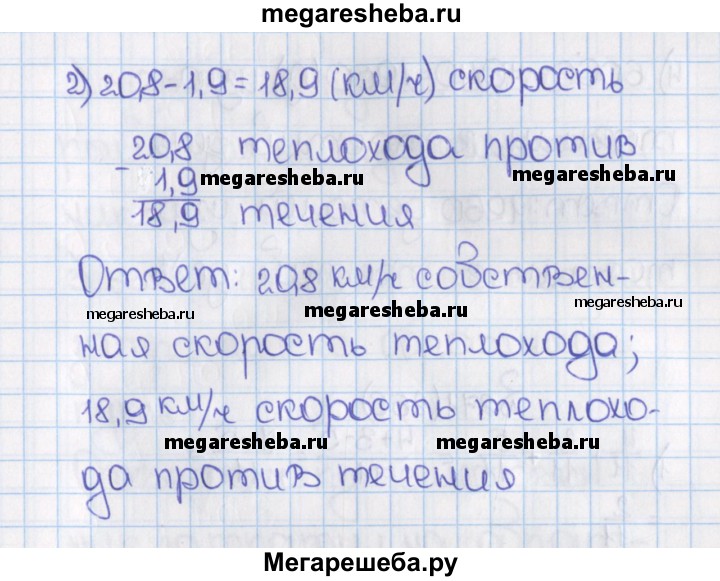 megaresheba.ru
2) 20,8-1,9=18,9 (км/ч) скорость
-20,8 теплохода против
1,9 megaresheba.ru megaresheba.ru
18,9 течения
Ответ: 20,8 км/ч собствен-
megaresheba.ru megaresheba.ru megaresheba.ru
ная скорость теплохода;
18,9 км/ч скорость теплохо-
megaresheba.ru megaresheba.ru
да против течения
Мегарешеба.ру